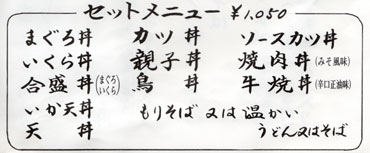 セットメニュー ¥1,050
まぐろ丼
いくら丼
合盛丼(まぐろ いくら)
いか天丼
天丼
カツ丼
親子丼
鳥丼
ソースカツ丼
焼肉丼(みそ風味)
牛焼丼(辛口正油味)
もりそば又は温かい
うどん又はそば